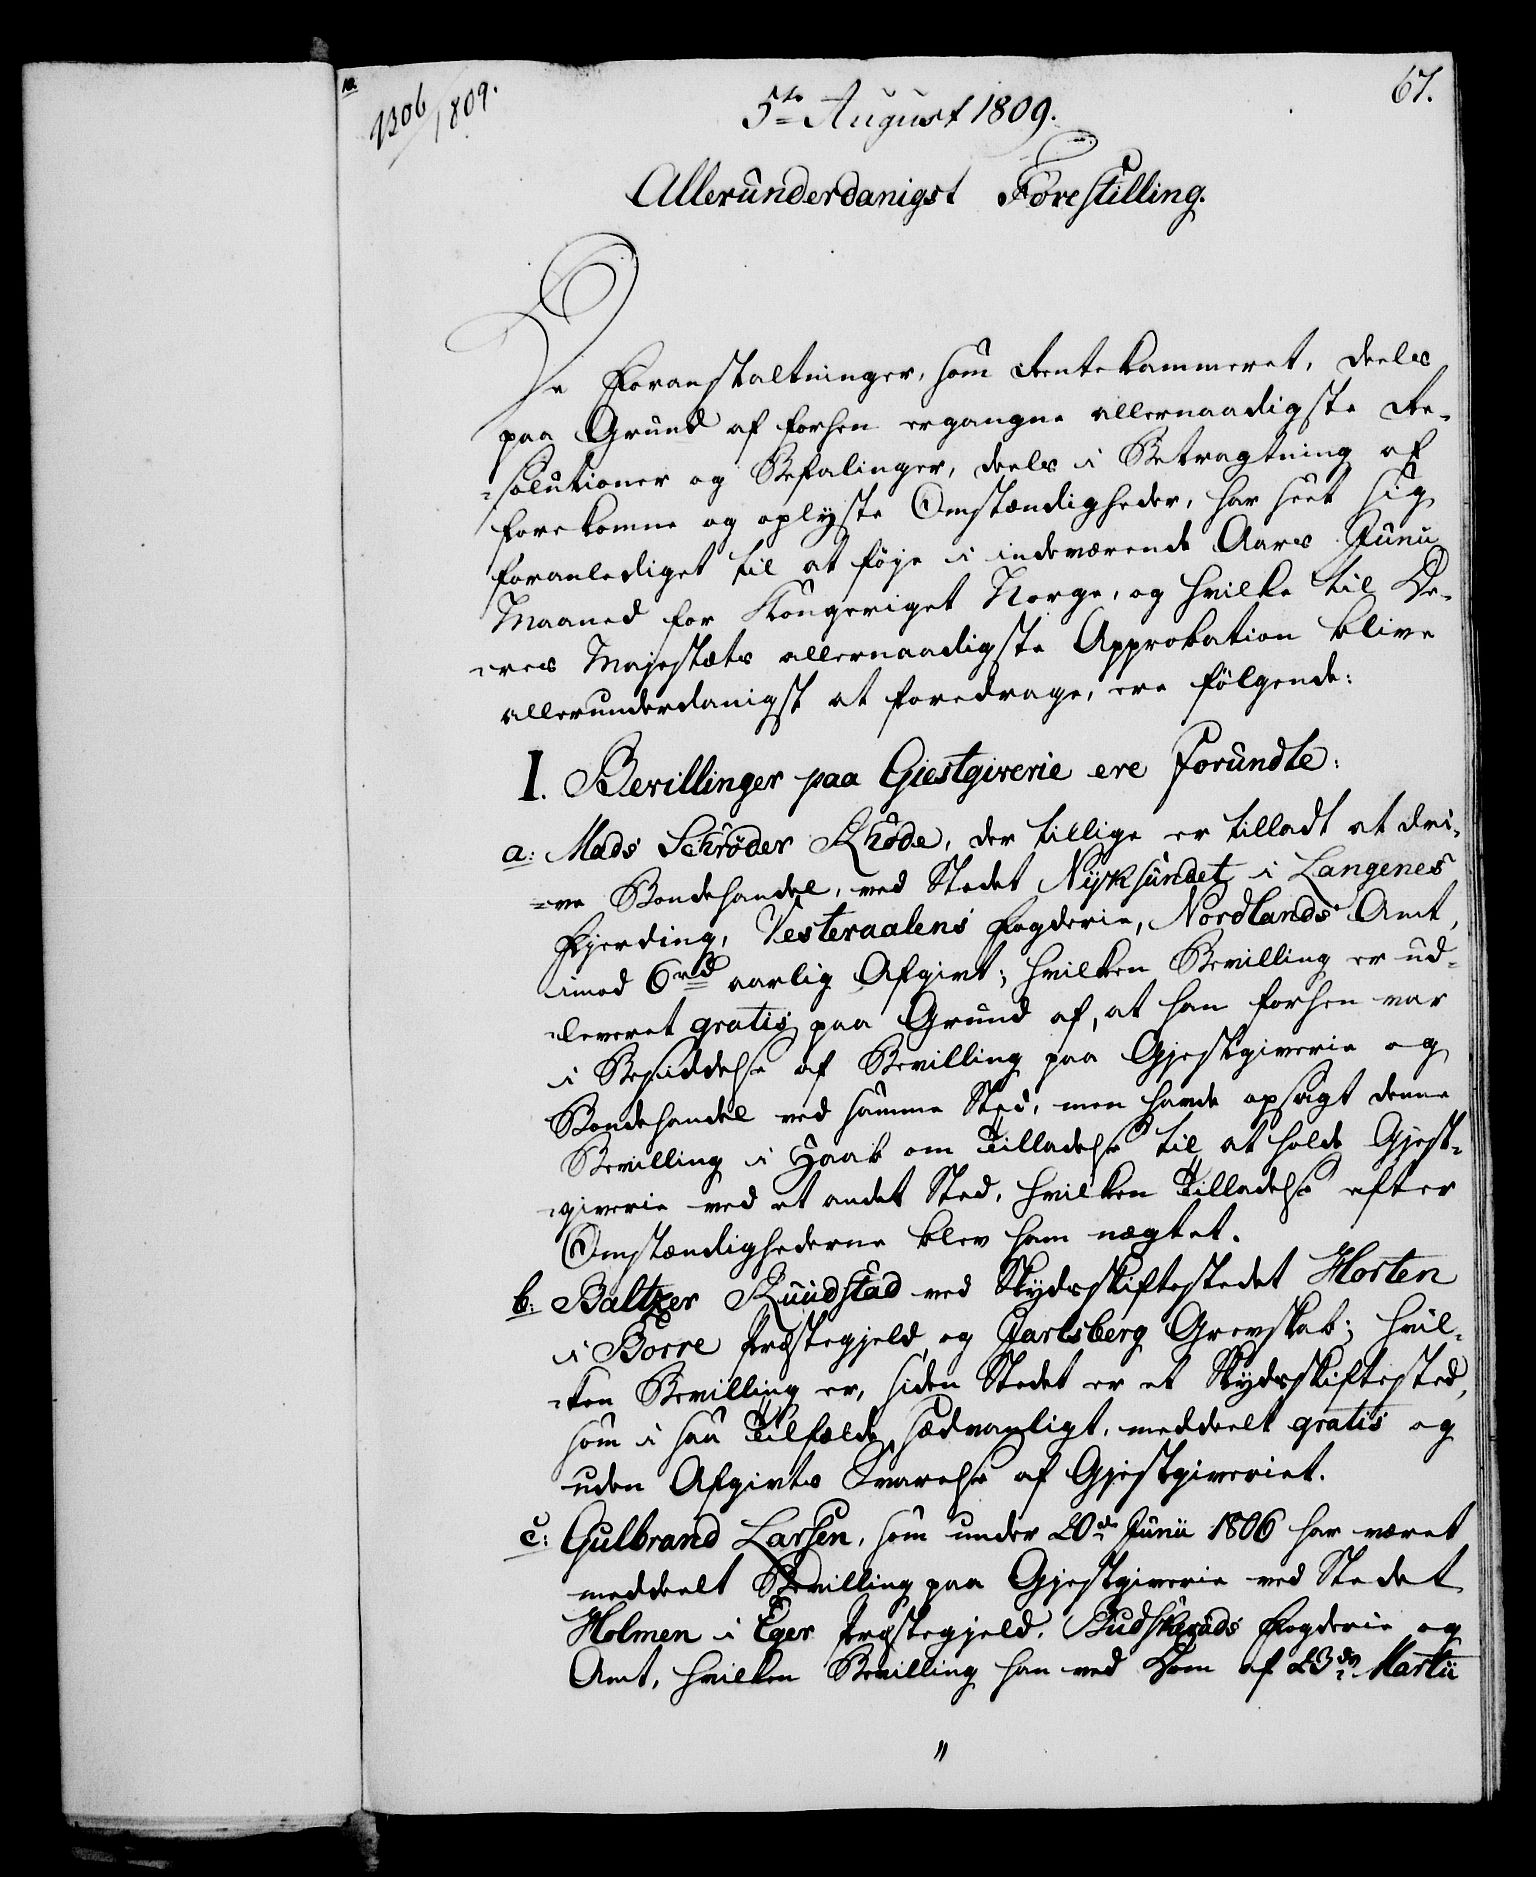 1306/1809.
5te August 1809.
67.
Allerunderdanigst Forestilling.
De Foranstaltninger, som Rentekammeret, deels
paa Grund af forhen ergangne allernaadigste Re-
solutioner og Befalinger, deels i Betragtning af
forekomne og oplyste Omstændigheder, har seet sig
foranlediget til at føje i indeværende Aars Junii
Maaned for Kongeriget Norge, og hvilke til De-
res Majestæts allernaadigste Approbation blive
allerunderdanigst at foredrage, ere følgende:
I. Bevillinger paa Giestgiverie ere Forundte:
a: Mads Schrøder Rhode, der tillige er tilladt at dri-
ve Bondehandel, ved Stedet Nyksundet i Langenes
Fjerding, Vesteraalens Fogderie, Nordlands Amt,
imod 6 rd aarlig Afgivt; hvilken Bevilling er ud-
leveret gratis paa Grund af, at han forhen var
i Besiddelse af Bevilling paa Gjestgiverie og
Bondehandel ved samme Sted, men havde opsagt denne
Bevilling i Haab om Tilladelse til at holde Gjest-
giverie ved et andet Sted, hvilken Tilladelse efter
Omstændighederne blev ham nægtet.
b: Baltzer Ruudstad ved Skydsskiftestedet Horten
i Borre Præstegjeld og Jarlsberg Grevskab; hvil-
ken Bevilling er, siden Stedet er et Skydsskiftested,
som i saa Tilfælde sædvanligt, meddeelt gratis og
uden Afgivts Svarelse af Gjestgiveriet.
c: Gulbrand Larsen, som under 20de Junii 1806 har været
meddeelt Bevilling paa Gjestgiverie ved Stedet
Holmen i Eger Præstegjeld, Budskeruds Fogderie og
Amt, hvilken Bevilling han ved Dom af 23de Martii